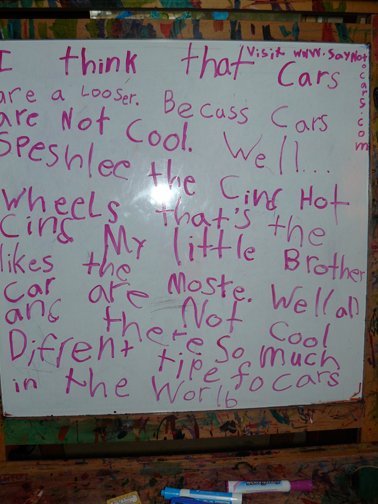 I think that Cars
Visit www.SayNotocars.com
are a Looser. Becuss Cars
are Not Cool. Well...
Speshlee the Cind Hot
Wheels that's the
Cind My little Brother
likes the
car are Moste. Well all
and Not Cool
there So much
Difrent tipe fo cars
in the World